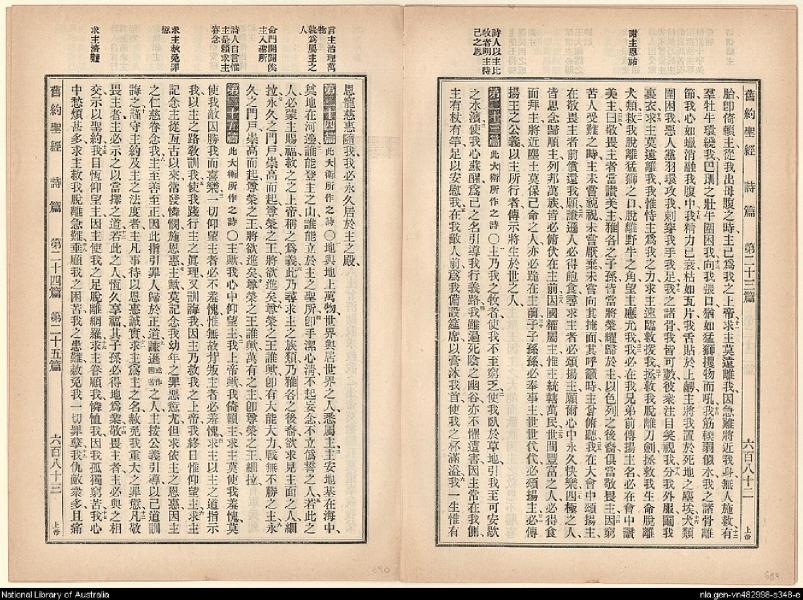 謝主恩祐
詩人以主比牧者明主待己之恩
舊約聖經 詩篇 第二十三篇 六百八十二 上帝
胎卽倚賴主從我出母腹之時主已爲我之上帝求主莫遠離我因急難將近我身無人施救有
羣牡牛環繞我巴珊之壯牛圍困我向我張口猶如猛獅攫物而吼我筋
節我心如蠟消融我腹中我精力已衰枯如瓦片我舌貼於上齶主將我置於死地之塵埃犬類
圍困我惡人黨羽環攻我刺穿我手我足我之諸骨我皆可數彼衆注目笑視我分我外服鬮我
裏衣求主莫遠離我我惟恃主爲我之力求主速臨救援我拯救我脫離刀劍拯救我生命脫離
犬類救我脫離猛獅之口脫離野牛之角望主應允我我必在我兄弟前傳揚主名必在會中讚
美主曰敬畏主者當讚美主雅各之子孫皆當將榮耀歸於主以色列之後裔俱當敬畏主因窮
苦人受難之時主未嘗藐視未嘗厭棄未嘗向其掩面其呼籲時主卽俯聽我在大會中頌揚主
在敬畏主者前償還我願謙遜人必得飽食尋求主者必頌揚主願爾心中永久快樂四極之人
皆思念歸順主列邦萬族皆必俯伏在主前因國權屬主惟主統轄萬民世間豐富之人必得食
而拜主將近塵土莫保己命之人亦必跪在主前子子孫孫必奉事主世世代代必頌揚主必傳
揚主之公義以主所行者傳示將生於世之人
第二十三篇 此大衛所作之詩 ○主乃我之牧者使我不至窮乏使我臥於草地引我至可安歇
之水濱使我心蘇醒爲己之名引導我行義路我雖過死陰之幽谷亦不懼遭害因主常在我側
主有杖有竿足以安慰我在我敵人前爲我備設筵席以膏沐我首使我之杯滿溢我一生惟有
言主治理萬物孰爲屬主之人
命門開闢俟主入禱所
詩人自言惟主是賴求主眷念
求主赦免罪愆
求主濟難
恩寵慈惠隨我我必永久居於主之殿
第二十四篇 此大衛所作之詩 ○地與地上萬物世界與居世界之人悉屬主主安地基在海中
奠地在河邊誰能登主之山誰能立於主之聖所卽手潔心清不起妄念不立僞誓之人若此之
人必蒙主賜福救之之上帝稱之爲義此乃尋求主之族類乃雅各之後裔欲求見主面之人細
拉永久之門戶崇高而起尊榮之王將欲進矣尊榮之王誰歟卽有大能大力戰無不勝之主永
久之門戶崇高而起尊榮之王將欲進矣尊榮之王誰歟萬有之主卽尊榮之王細拉
第二十五篇 此大衛所作之詩 ○主歟我心中仰望主我上帝歟我倚賴主求主莫使我羞愧莫
使我敵因勝我而喜樂一切仰望主者必不羞愧惟無故背叛主者必羞愧求主以主之道指示
我以主之路敎訓我使我踐行主之眞理又訓誨我因主乃救我之上帝我終日惟仰望主求主
記念主從亙古以來常發憐憫施恩惠主歟莫記念我幼年之罪惡愆尤但求依主之恩惠因主
之仁慈眷念我主至善至正因此將引罪人歸於正道謙遜之人主按公義引導以己道訓
誨之謹守主約及主之法度者主凡事待以恩惠誠實主歟爲主之名赦免我重大之罪愆凡敬
畏主者主必示之以當擇之道若此之人恆久享福其子孫必得地爲業敬畏主者主必與之相
交示以聖約我目恆仰望主因主使我之足脫離網羅求主眷顧我憐恤我因我孤獨窮苦我心
中愁煩甚多求主救我脫離急難垂顧我之困苦我之患難赦免我一切罪孽我仇敵衆多且痛
舊約聖經 詩篇 第二十四篇 第二十五篇 六百八十三 上帝
National Library of Australia
nla.gen-vn482998-s348-e